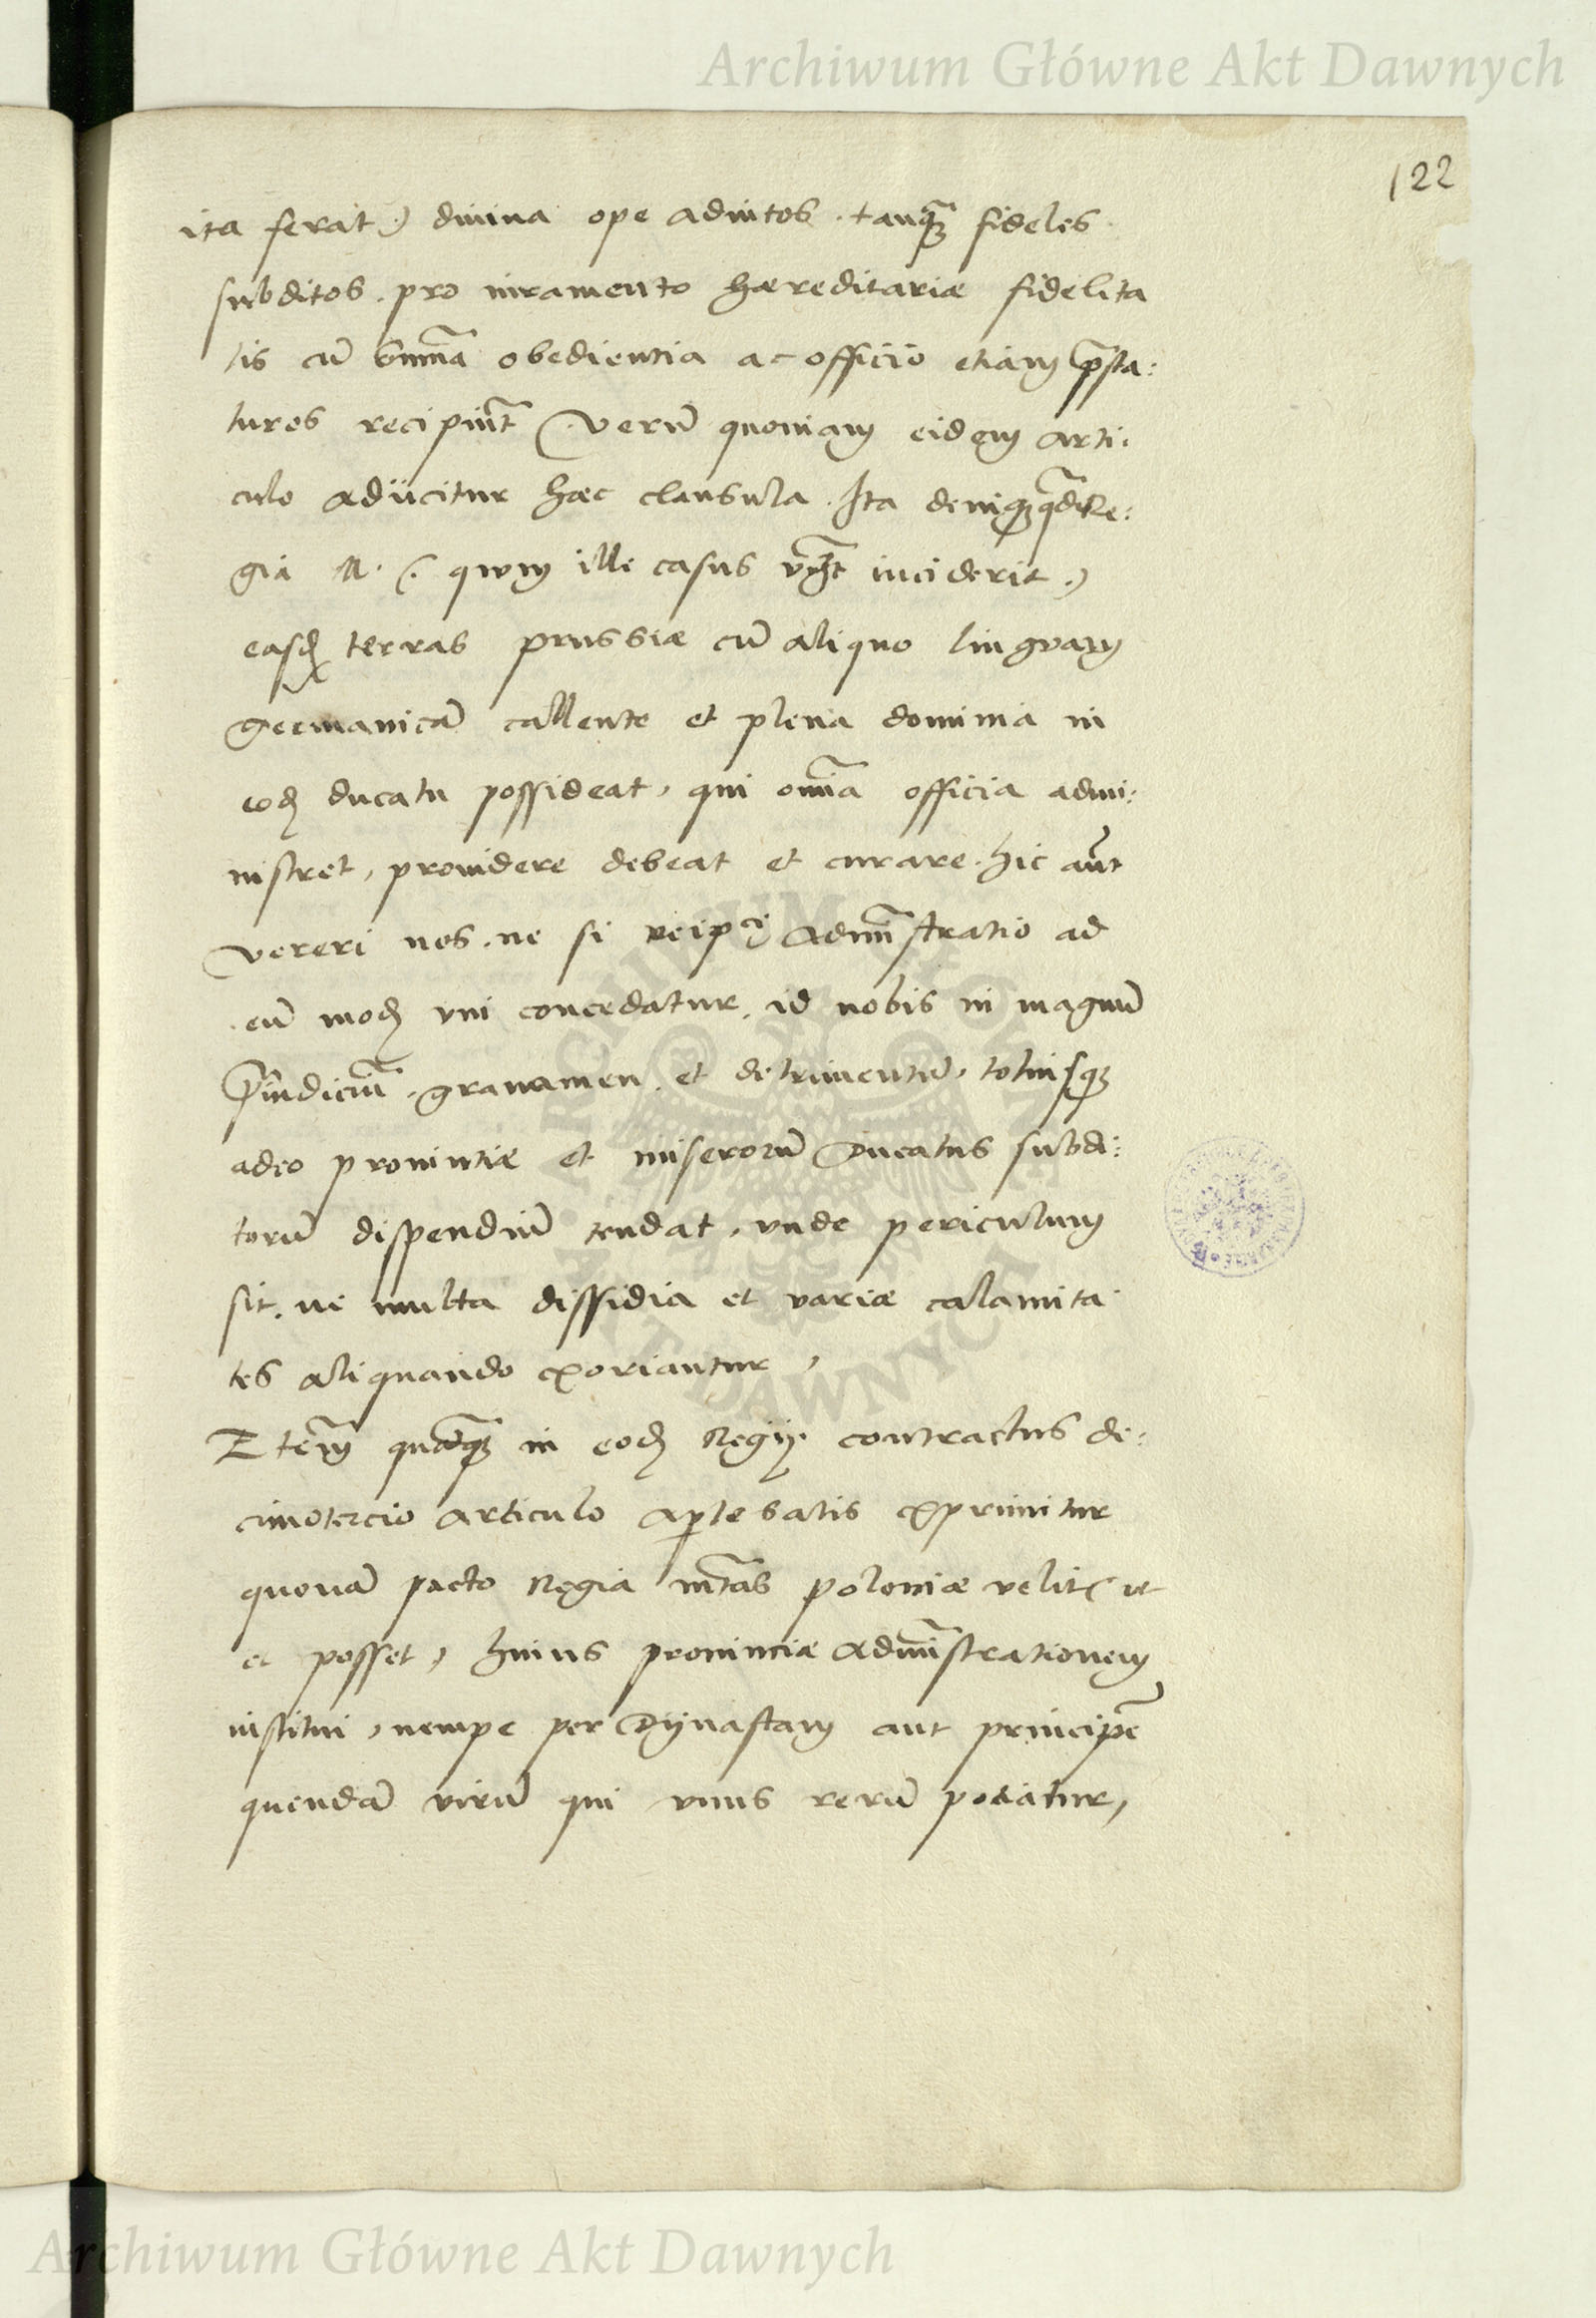 Archiwum Główne Akt Dawnych
122
ita ferat) diuina ope adiutos. tanq̃ꝫ fideles
subditos. pro iuramento hæreditariæ fidelita
tis cũ summa obedientia ac officio etiam p̃sta:
turos recipiũt (. verũ quoniam eidem arti:
culo adijcitur hæc clausula. Ita deniqꝫ Re:
gia M. (. quum ille casus inciderit.)
easd terras prussiæ cũ aliquo linguam
germanicã callente et plena dominia in
eod ducatu possideat, qui om̃ia officia admi:
nistret, prouidere debeat et curare. hic aũt
vereri nos. ne si reip adm̃istratio ad
eũ mod vni concedatur. id nobis in magnũ
p̃iudiciũ. grauamen. et detrimentũ, totiusqꝫ
adeo prouintiæ et miserorũ Ducatus subdi:
torũ dispendiũ tendat, vnde periculum
sit. ne multa dissidia et variæ calamita
tes aliquando exoriantur,
Etem̃ quãqꝫ in eod Regij contractus de:
cimotercio articulo apte satis exprimitur
quonã pacto Regia mtãs poloniæ velit (ut
et posset, huius prouinciæ adm̃istrationem
institui, nempe per Dynastam aut principẽ
quendã virũ qui vnus rerũ potiatur,
Archiwum Główne Akt Dawnych